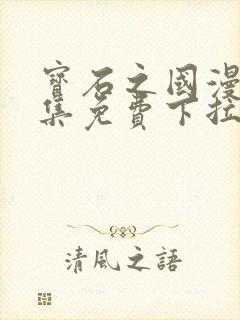 寶石之國漫
集免費下拉
清風之語